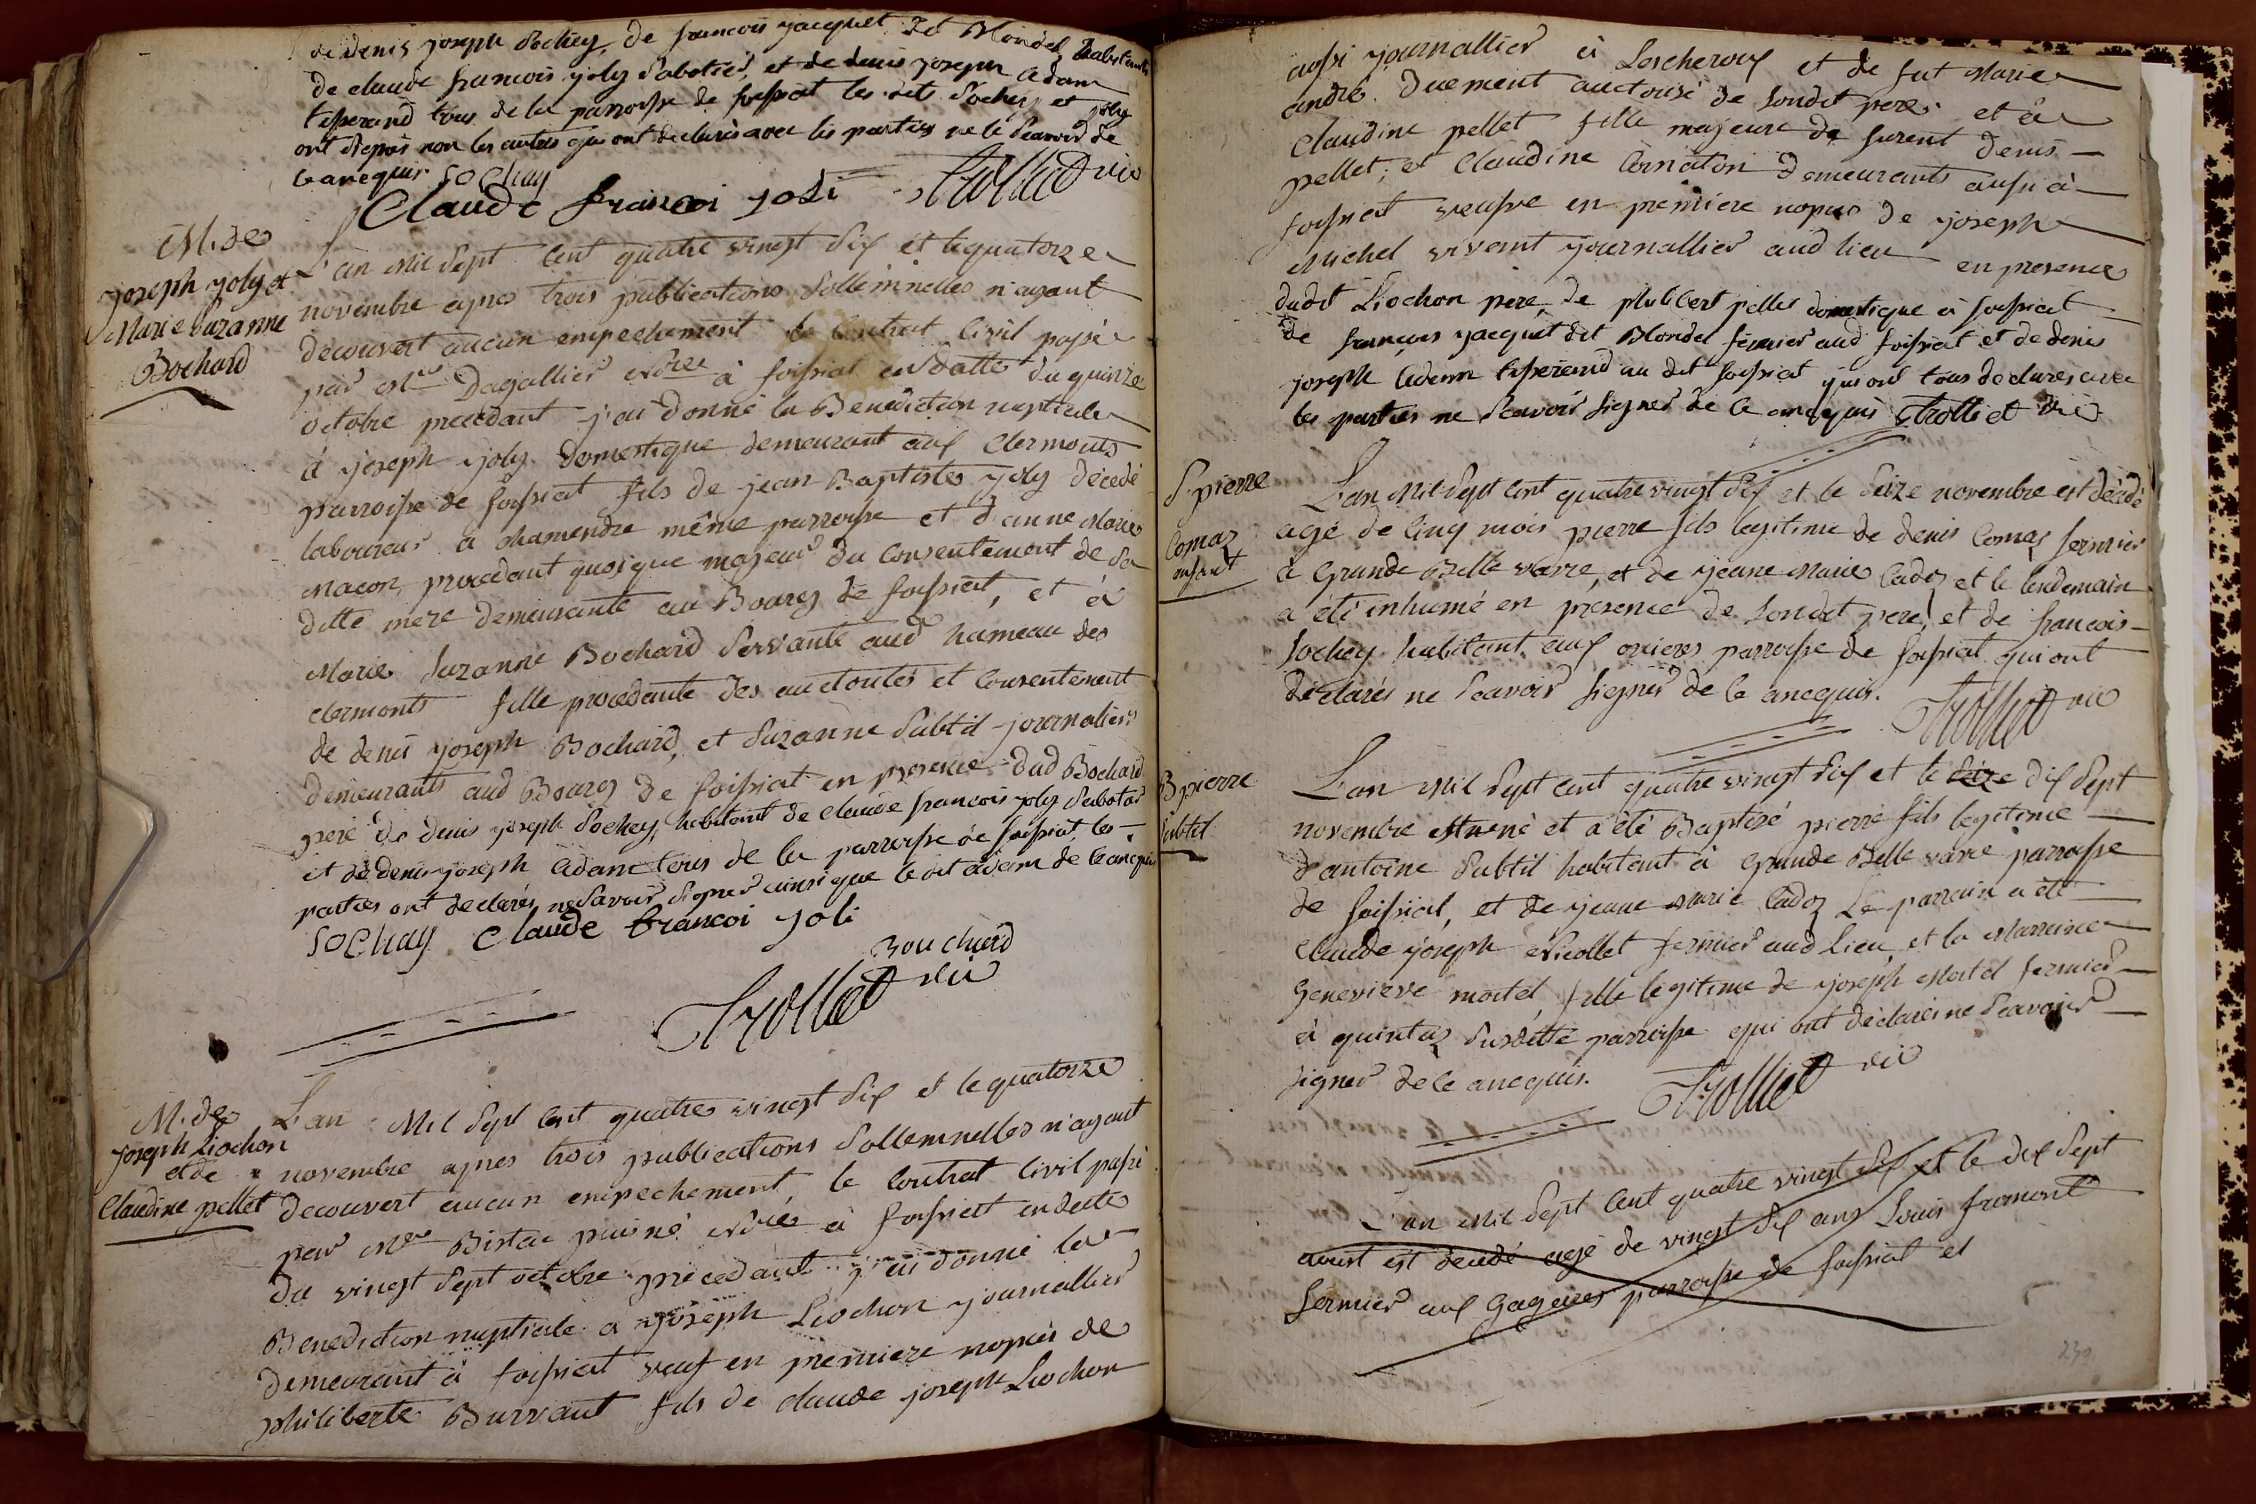 de denis joseph Sochey, de francois jacquet dit Blondel habitants
de claude francois joly Sabotier, et de denis joseph Adam
tisserand tous de la parroisse de foissiat les dits Sochey et joly
ont signés non les autres qui ont declarés avec les parties ne le scavoir de
ce anequis Sochay
Claude francoi joli Trolliet vic
M. de
joseph joly et
Marie Suzanne
Bochard
L'an Mil Sept Cent quatre vingt dix et le quatorze
novembre apres trois publications Sollemnelles n'ayant
decouvert aucun empechement le Contrat Civil passé
par Mre Dagallier Nore à foissiat en datte du quinze
octobre precedant j'ai donné la Benediction nuptiale
à joseph joly domestique demeurant aux Clermonts
parroisse de foissiat fils de jean Baptiste joly décedé
laboureur à chamandre même parroisse et d'anne Marie
Macon, procedant quoique majeur du Consentement de Sa
ditte mere demeurante au Bourg de foissiat, et à
Marie Suzanne Bochard Servante aud hameau des
Clermonts fille procedante des auctorités et Consentement
de denis joseph Bochard, et Suzanne Subtil journaliers
demeurants aud Bourg de foissiat en presence dud Bochard
pere de denis joseph Sochey, habitant de claude francois joly Sabotier
et de denis joseph Adam tous de la parroisse de foissiat, les
parties ont declarés ne Savoir Signer ainsi que le dit adam de ce anequis
Sochay Claude francoi joli
Bouchard
Trolliet vic
M. de
joseph Liochon
et de
Claudine pellet
L'an Mil Sept Cent quatre vingt dix et le quatorze
novembre apres trois publications Sollemnelles n'ayant
decouvert aucun empechement, le Contrat Civil passé
par Mre Bistac puisné Nore à foissiat en datte
du vingt Sept octobre precedant j'ai donné la
Benediction nuptiale a joseph Liochon journallier
demeurant à foissiat veuf en premiere nopces de
philiberte Burvant fils de claude joseph Liochon
aussi journallier à Lescheroux et de fut Marie
andré duement auctorisé de Sondit pere et à
Claudine pellet fille majeure de furent denis
pellet, et Claudine Cornaton demeurants aussi à
foissiat veufve en premiere nopces de joseph
Michel vivant journallier aud lieu en presence
dudit Liochon pere, de philibert pellet domestique à foissiat
de françois jacquet dit Blondel fermier aud foissiat et de denis
joseph Adam tisserand au dit foissiat qui ont tous declarés avec
les parties ne Scavoir Signer de ce anequis Trolliet vic
S pierre
Comaz
enfant
L'an Mil Sept Cent quatre vingt dix et le Seize novembre est décédé
agé de Cinq mois pierre fils legitime de denis Comaz fermier
à Grande Belle varre, et de jeane Marie Cadoz et le lendemain
a été inhumé en présence de Sondit pere, et de francois
Sochey habitant aux orcieres parroisse de foissiat qui ont
déclarés ne Scavoir Signer de ce anequis. Trolliet vic
B pierre
Subtil
L'an Mil Sept Cent quatre vingt dix et le Seize dix Sept
novembre est né et a été Baptisé pierre fils legitime
d'antoine Subtil habitant à Grande Belle varre parroisse
de foissiat, et de jeane Marie Cadoz Le parrain a été
Claude joseph Nicollet fermier aud Lieu, et la Marreine
Genevieve mortel, fille legitime de joseph Mortel fermier
à quintaz Susditte parroisse qui ont déclarés ne Scavoir
signer de ce anequis. Trolliet vic
L'an Mil Sept Cent quatre vingt dix et le dix Sept
aoust est decedé agé de vingt dix ans Louis fromont
fermier aux Gageires parroisse de foissiat et
239